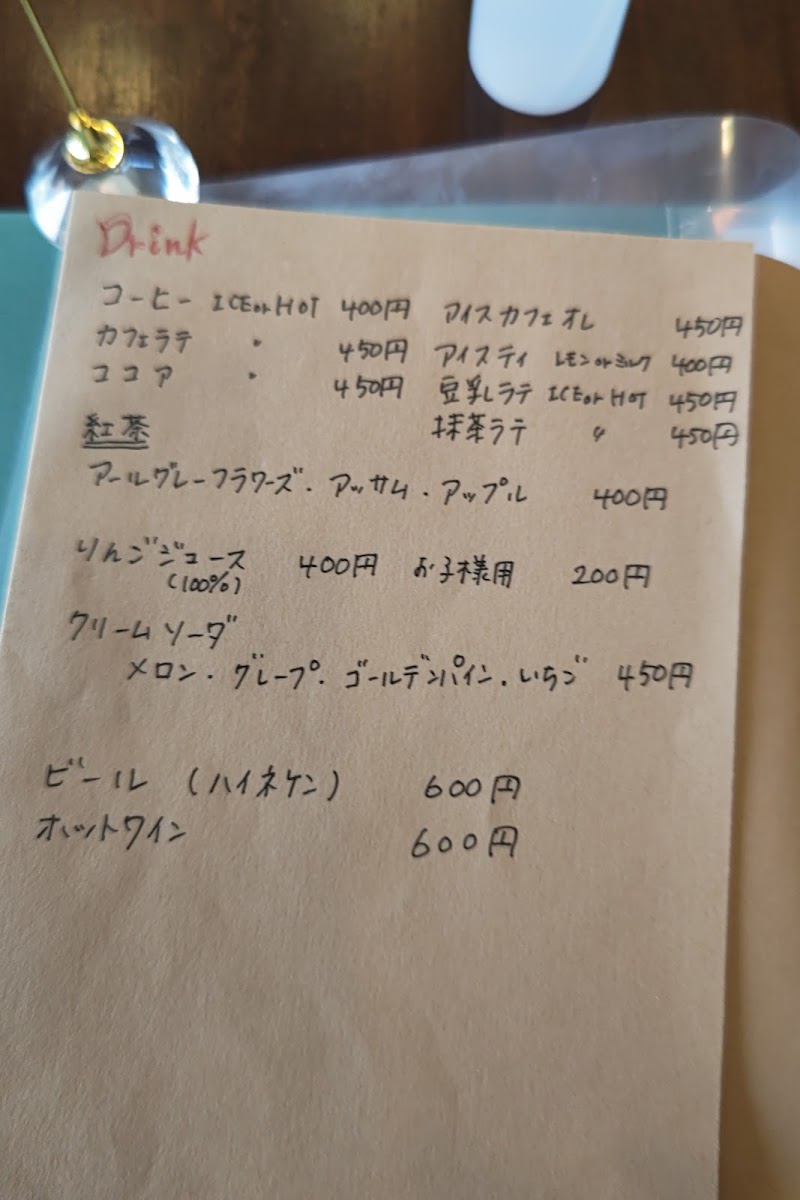 Drink
コーヒー ICE or HOT 400円 アイスカフェオレ 450円
カフェラテ 〃 450円 アイスティ レモン or ミルク 400円
ココア 〃 450円 豆乳ラテ ICE or HOT 450円
紅茶 抹茶ラテ 〃 450円
アールグレーフラワーズ・アッサム・アップル 400円
りんごジュース 400円 お子様用 200円
(100%)
クリームソーダ
メロン・グレープ・ゴールデンパイン・いちご 450円
ビール (ハイネケン) 600円
ホットワイン 600円